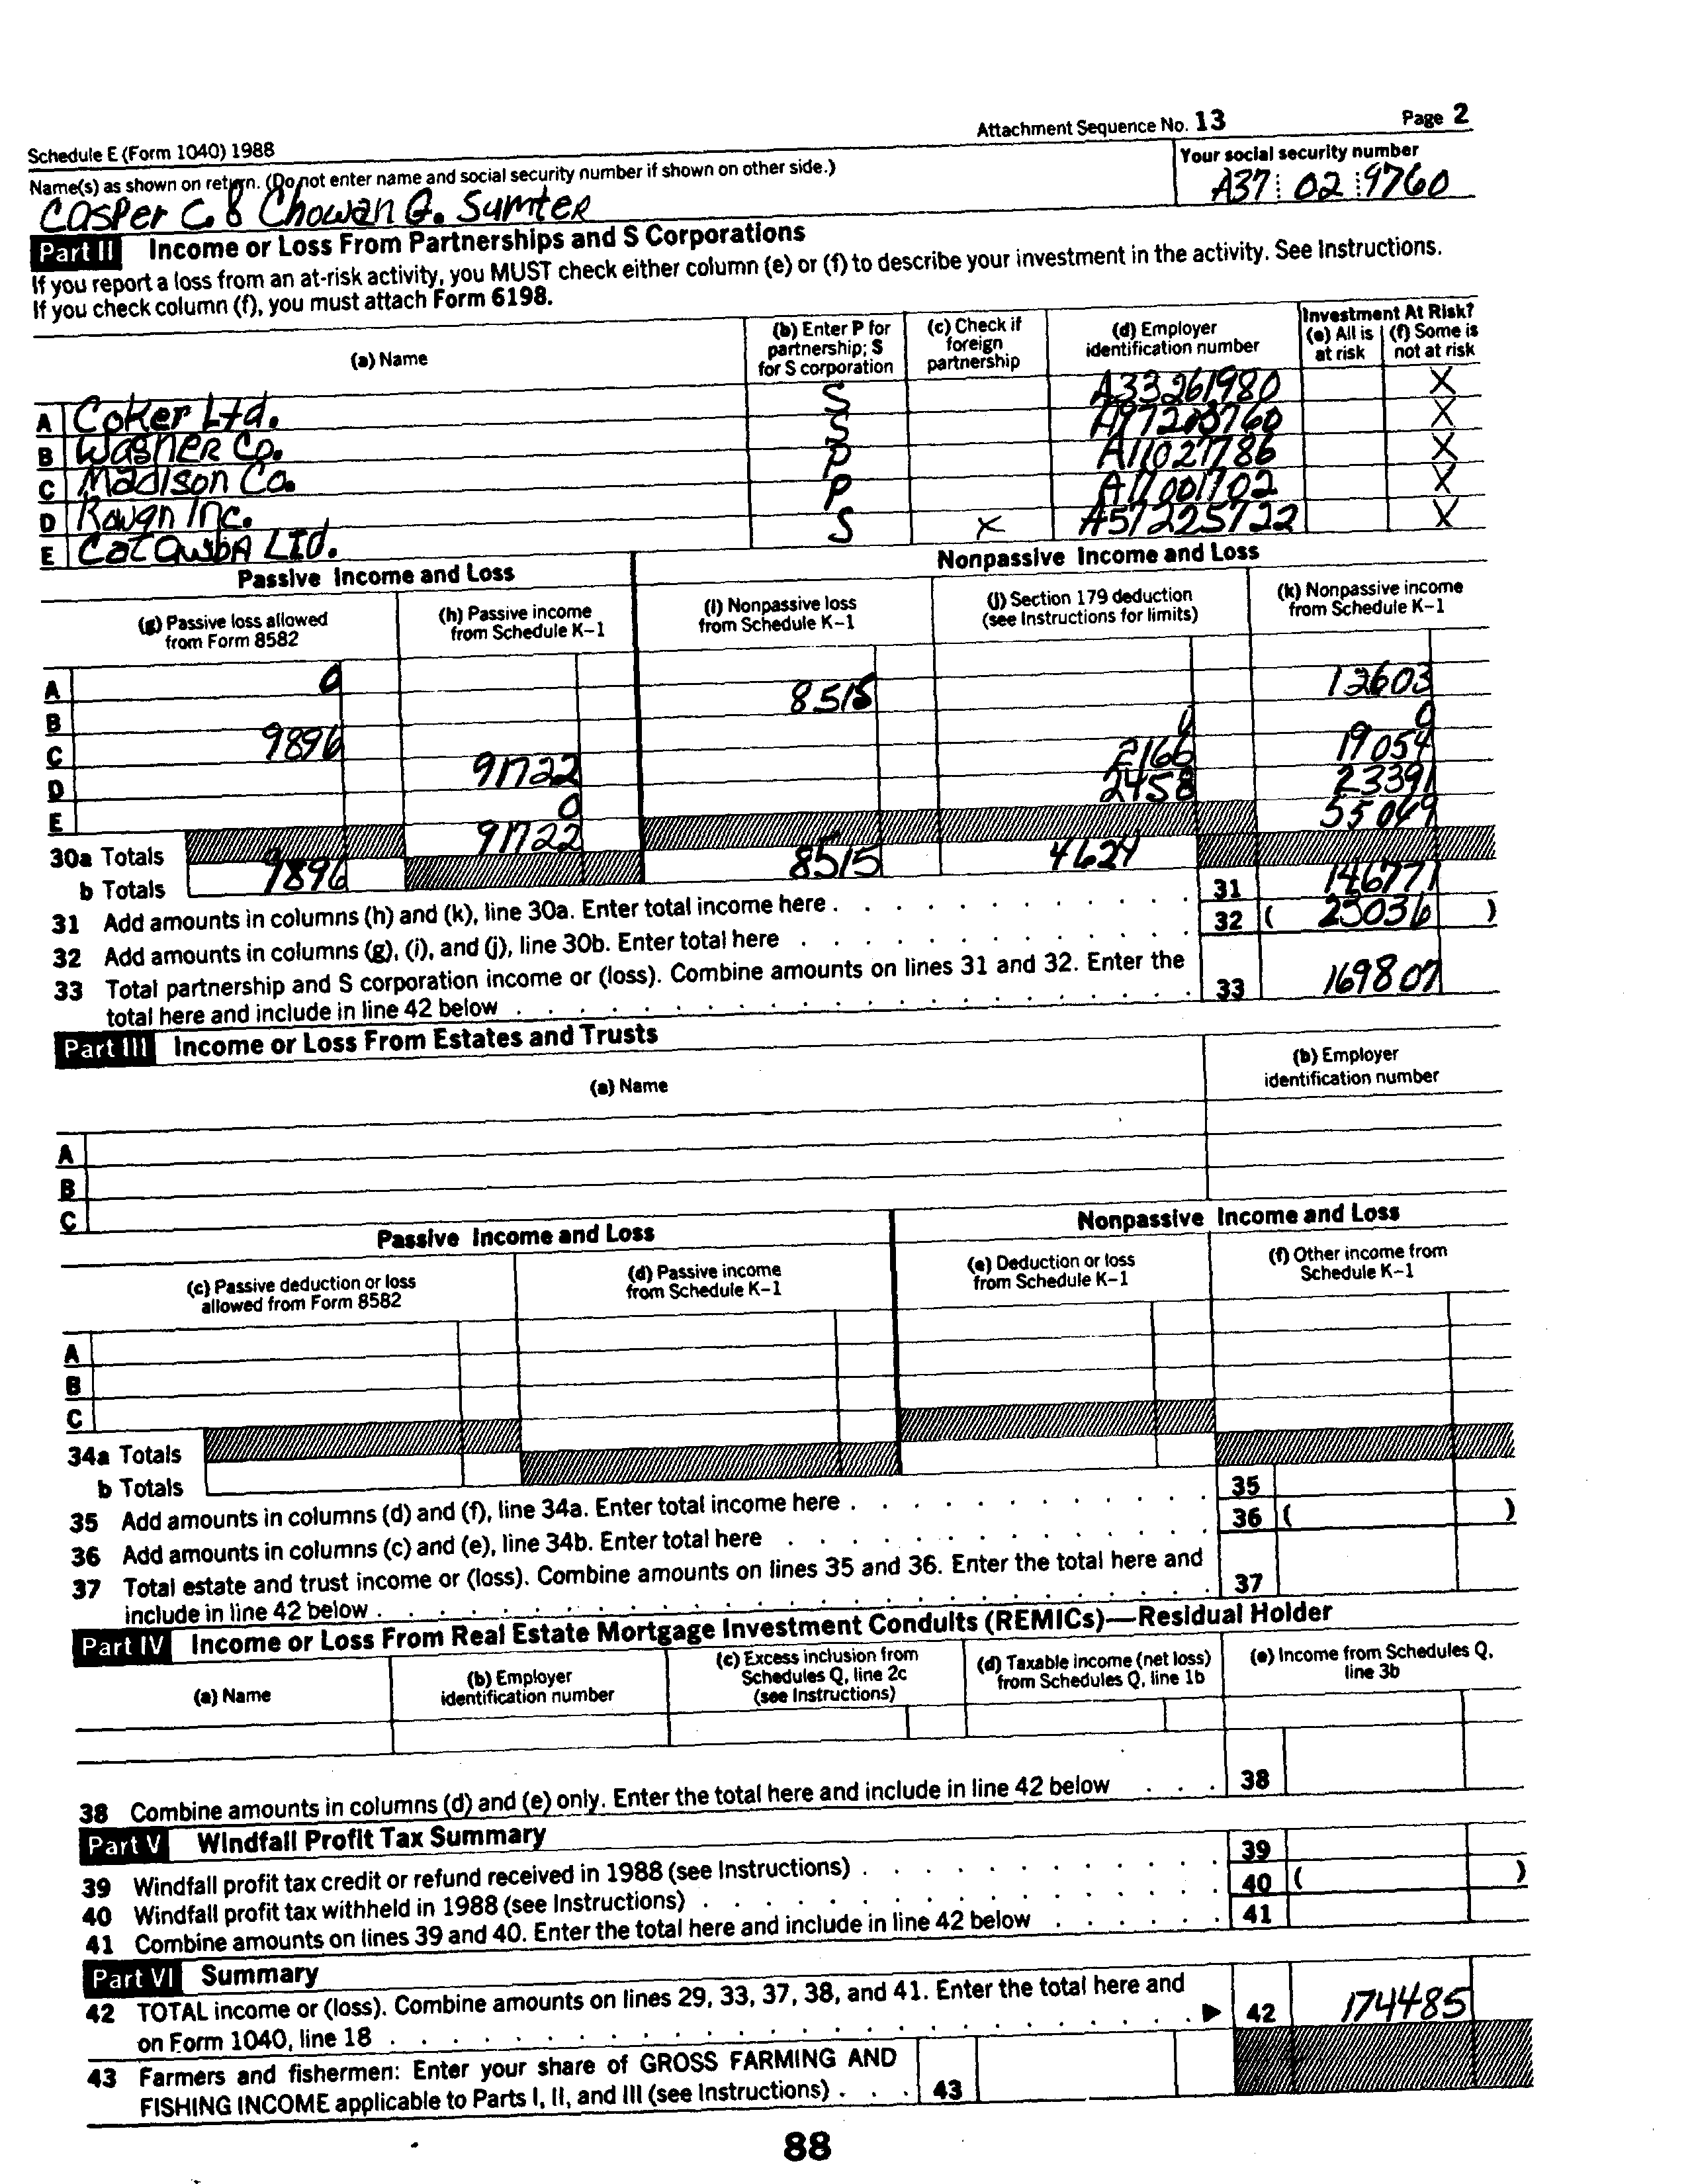 Attachment Sequence No. 13 Page 2
Schedule E (Form 1040) 1988
Name(s) as shown on return. (Do not enter name and social security number if shown on other side.) Your social security number
Casper C. & Chowan G. Sumter A37 02 9760
Part II Income or Loss From Partnerships and S Corporations
If you report a loss from an at-risk activity, you MUST check either column (e) or (f) to describe your investment in the activity. See Instructions.
If you check column (f), you must attach Form 6198.
(a) Name (b) Enter P for partnership; S for S corporation (c) Check if foreign partnership (d) Employer identification number Investment At Risk? (e) All is at risk (f) Some is not at risk
A Coker Ltd. S A33261980 X
B Wagner Co. S X
C Madison Co. P A11027786 X
D Rowan Inc. P A17001702 X
E Catawba Ltd. S X A57225722 X
Passive Income and Loss Nonpassive Income and Loss
(g) Passive loss allowed from Form 8582 (h) Passive income from Schedule K–1 (i) Nonpassive loss from Schedule K–1 (j) Section 179 deduction (see Instructions for limits) (k) Nonpassive income from Schedule K–1
A 0 8515 12603
B 0 0
C 9896 2166 19054
D 91722 2458 23391
E 0 55049
30a Totals 91722
b Totals 9896 8515 4624
31 Add amounts in columns (h) and (k), line 30a. Enter total income here . 31 146771
32 Add amounts in columns (g), (i), and (j), line 30b. Enter total here 32 ( 23036 )
33 Total partnership and S corporation income or (loss). Combine amounts on lines 31 and 32. Enter the
total here and include in line 42 below 33 169807
Part III Income or Loss From Estates and Trusts
(a) Name (b) Employer identification number
A
B
C
Passive Income and Loss Nonpassive Income and Loss
(c) Passive deduction or loss allowed from Form 8582 (d) Passive income from Schedule K–1 (e) Deduction or loss from Schedule K–1 (f) Other income from Schedule K–1
A
B
C
34a Totals
b Totals
35 Add amounts in columns (d) and (f), line 34a. Enter total income here . 35
36 Add amounts in columns (c) and (e), line 34b. Enter total here 36 ( )
37 Total estate and trust income or (loss). Combine amounts on lines 35 and 36. Enter the total here and
include in line 42 below . 37
Part IV Income or Loss From Real Estate Mortgage Investment Conduits (REMICs)—Residual Holder
(a) Name (b) Employer identification number (c) Excess inclusion from Schedules Q, line 2c (see Instructions) (d) Taxable income (net loss) from Schedules Q, line 1b (e) Income from Schedules Q, line 3b
38 Combine amounts in columns (d) and (e) only. Enter the total here and include in line 42 below 38
Part V Windfall Profit Tax Summary
39 Windfall profit tax credit or refund received in 1988 (see Instructions) . 39
40 Windfall profit tax withheld in 1988 (see Instructions) 40 ( )
41 Combine amounts on lines 39 and 40. Enter the total here and include in line 42 below 41
Part VI Summary
42 TOTAL income or (loss). Combine amounts on lines 29, 33, 37, 38, and 41. Enter the total here and
on Form 1040, line 18 ▶ 42 174485
43 Farmers and fishermen: Enter your share of GROSS FARMING AND
FISHING INCOME applicable to Parts I, II, and III (see Instructions) . 43
88